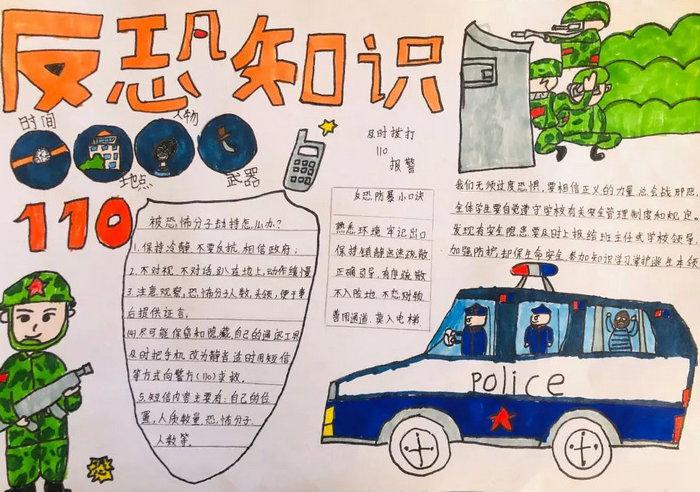 反恐知识
时间
人物
地点
武器
110
及时拨打
110
报警
被恐怖分子劫持怎么办?
1.保持冷静,不要反抗,相信政府;
2.不对视,不对话,趴在地上,动作缓慢
3.注意观察,恐怖分子人数,头领,便于事
后提供证言。
(4)尽可能保留和隐藏自己的通讯工具
及时把手机改为静音,适时用短信
等方式向警方(110)求救。
5.短信内容主要有:自己的位
置,人质数量,恐怖分子
人数等。
反恐防暴小口诀
熟悉环境 牢记出口
保持镇静 迅速疏散
正确引导,有序疏散
不入险地 不恋财物
善用通道 莫入电梯
我们无须过度恐惧,要相信正义的力量总会战胜邪恶。
全体学生要自觉遵守学校有关安全管理制度和规定。
发现有安全隐患要及时上报给班主任或学校领导。
加强防护,
生命安全,参加知识学习掌握逃生本领
Police